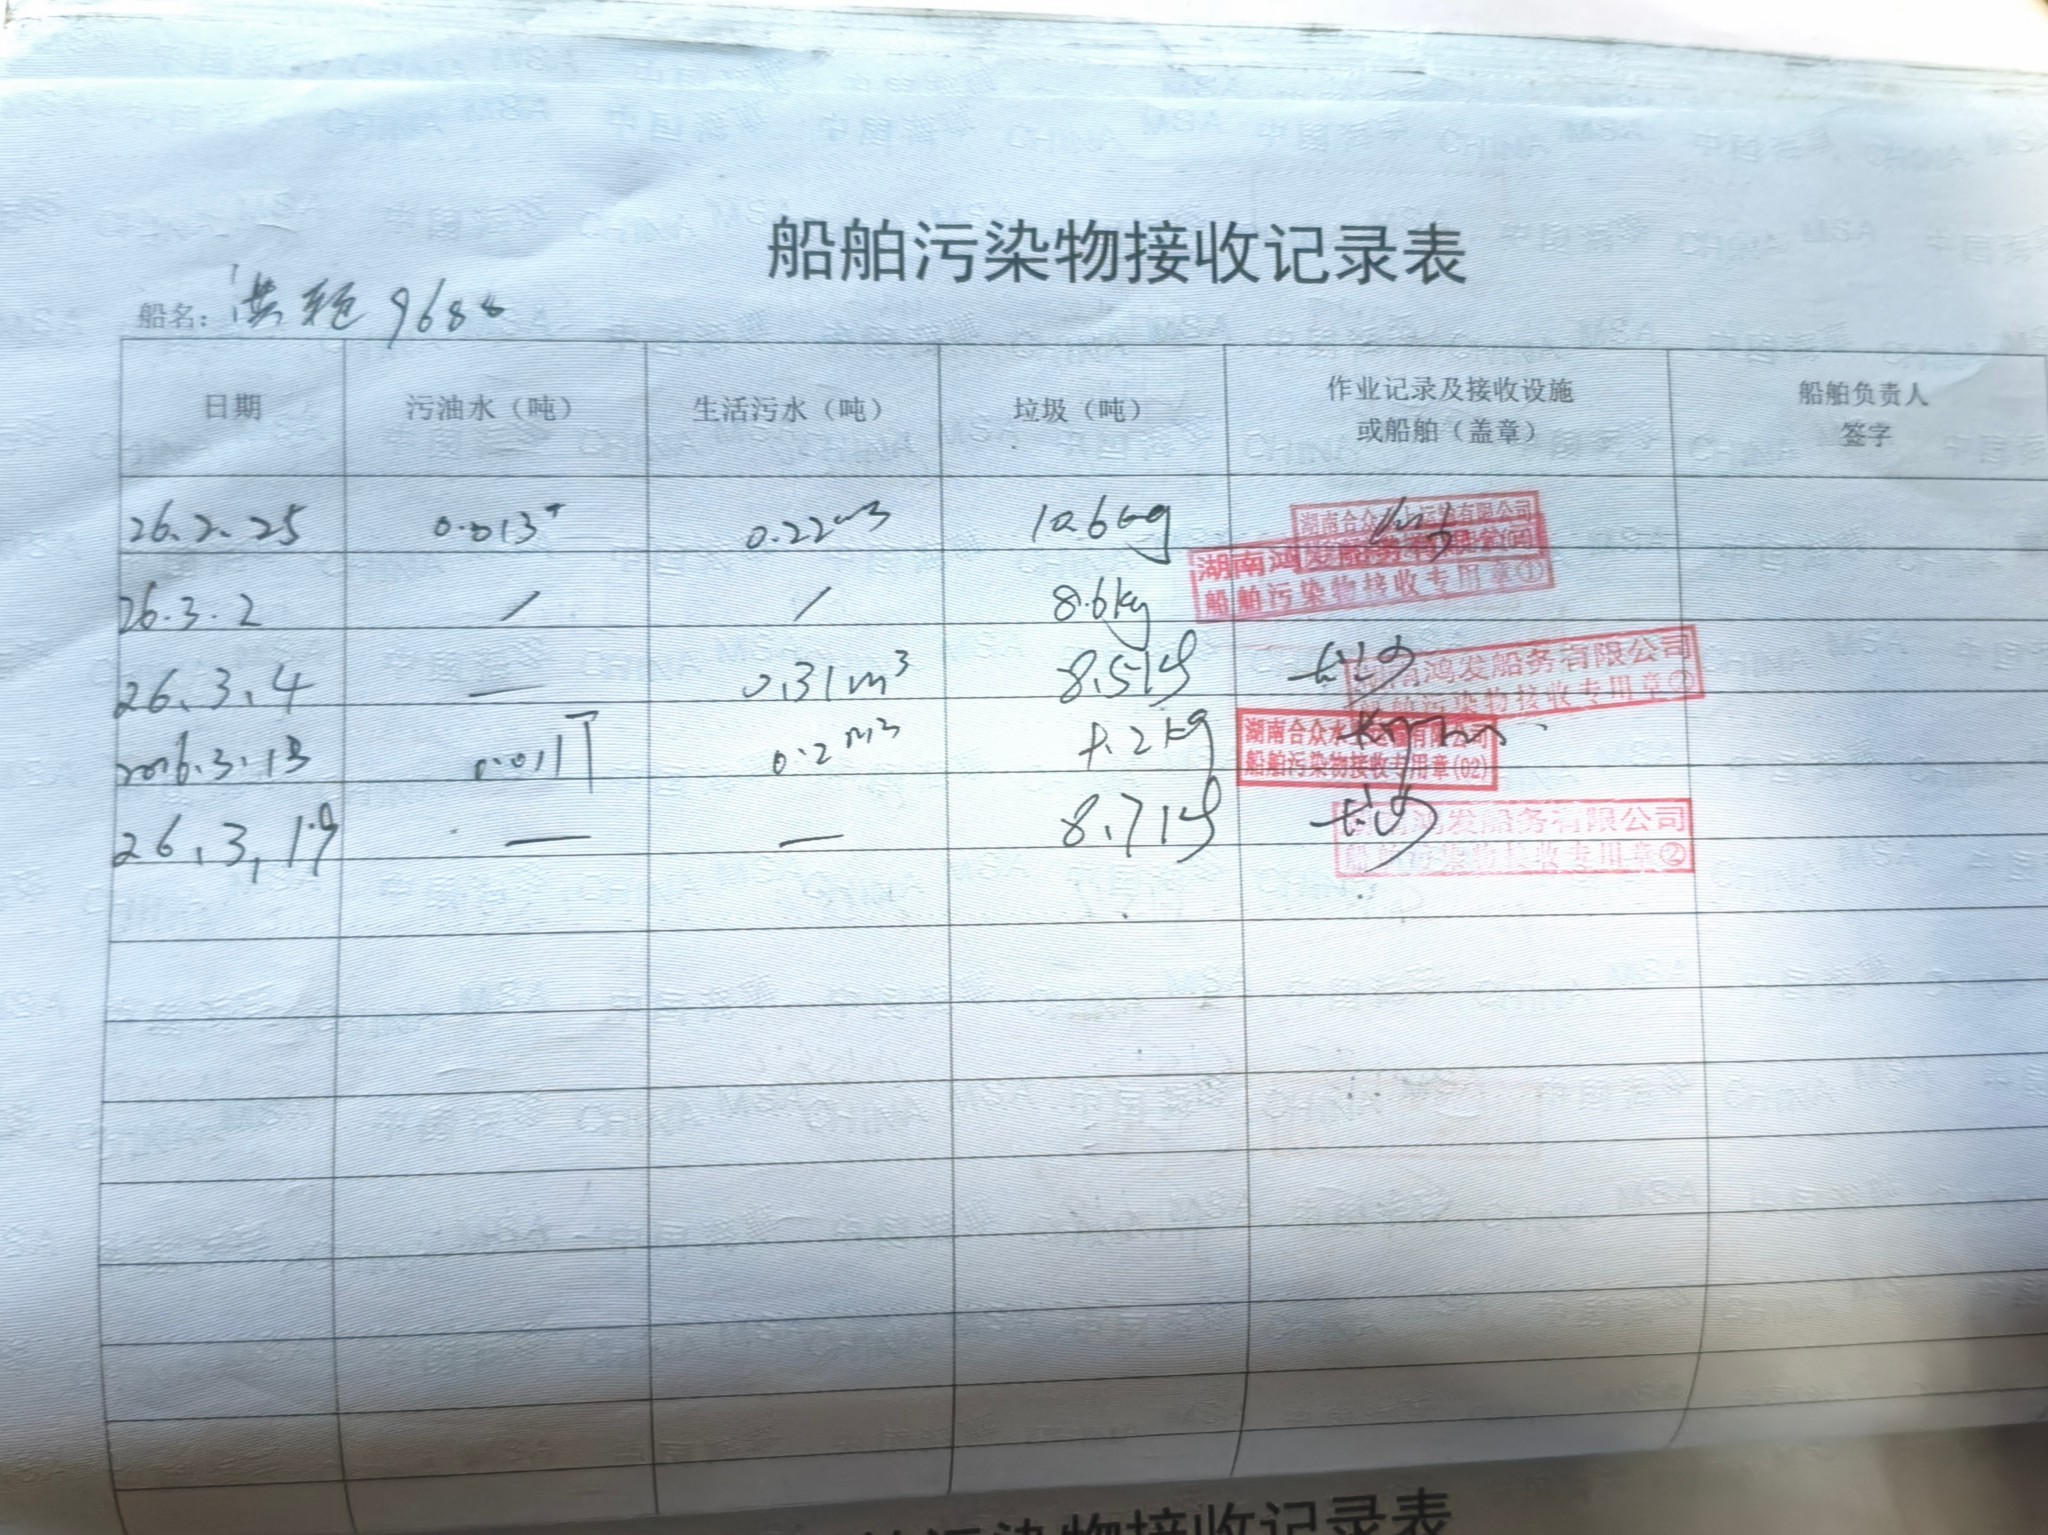 船舶污染物接收记录表
船名: 洪 9688
日期 污油水（吨） 生活污水（吨） 垃圾（吨） 作业记录及接收设施或船舶（盖章） 船舶负责人签字
26.2.25 0.013T 0.22m3 10.6kg 湖南合众水上运输有限公司
湖南鸿发船务有限公司
船舶污染物接收专用章①
26.3.2 / / 8.6kg
26.3.4 — 0.31m³ 8.5kg 长沙 湖南鸿发船务有限公司
船舶污染物接收专用章②
2026.3.13 0.011T 0.2m3 kg 湖南合众水上运输有限公司
船舶污染物接收专用章(02)
26.3.19 — — 8.7kg 长沙 湖南鸿发船务有限公司
船舶污染物接收专用章②
船舶污染物接收记录表